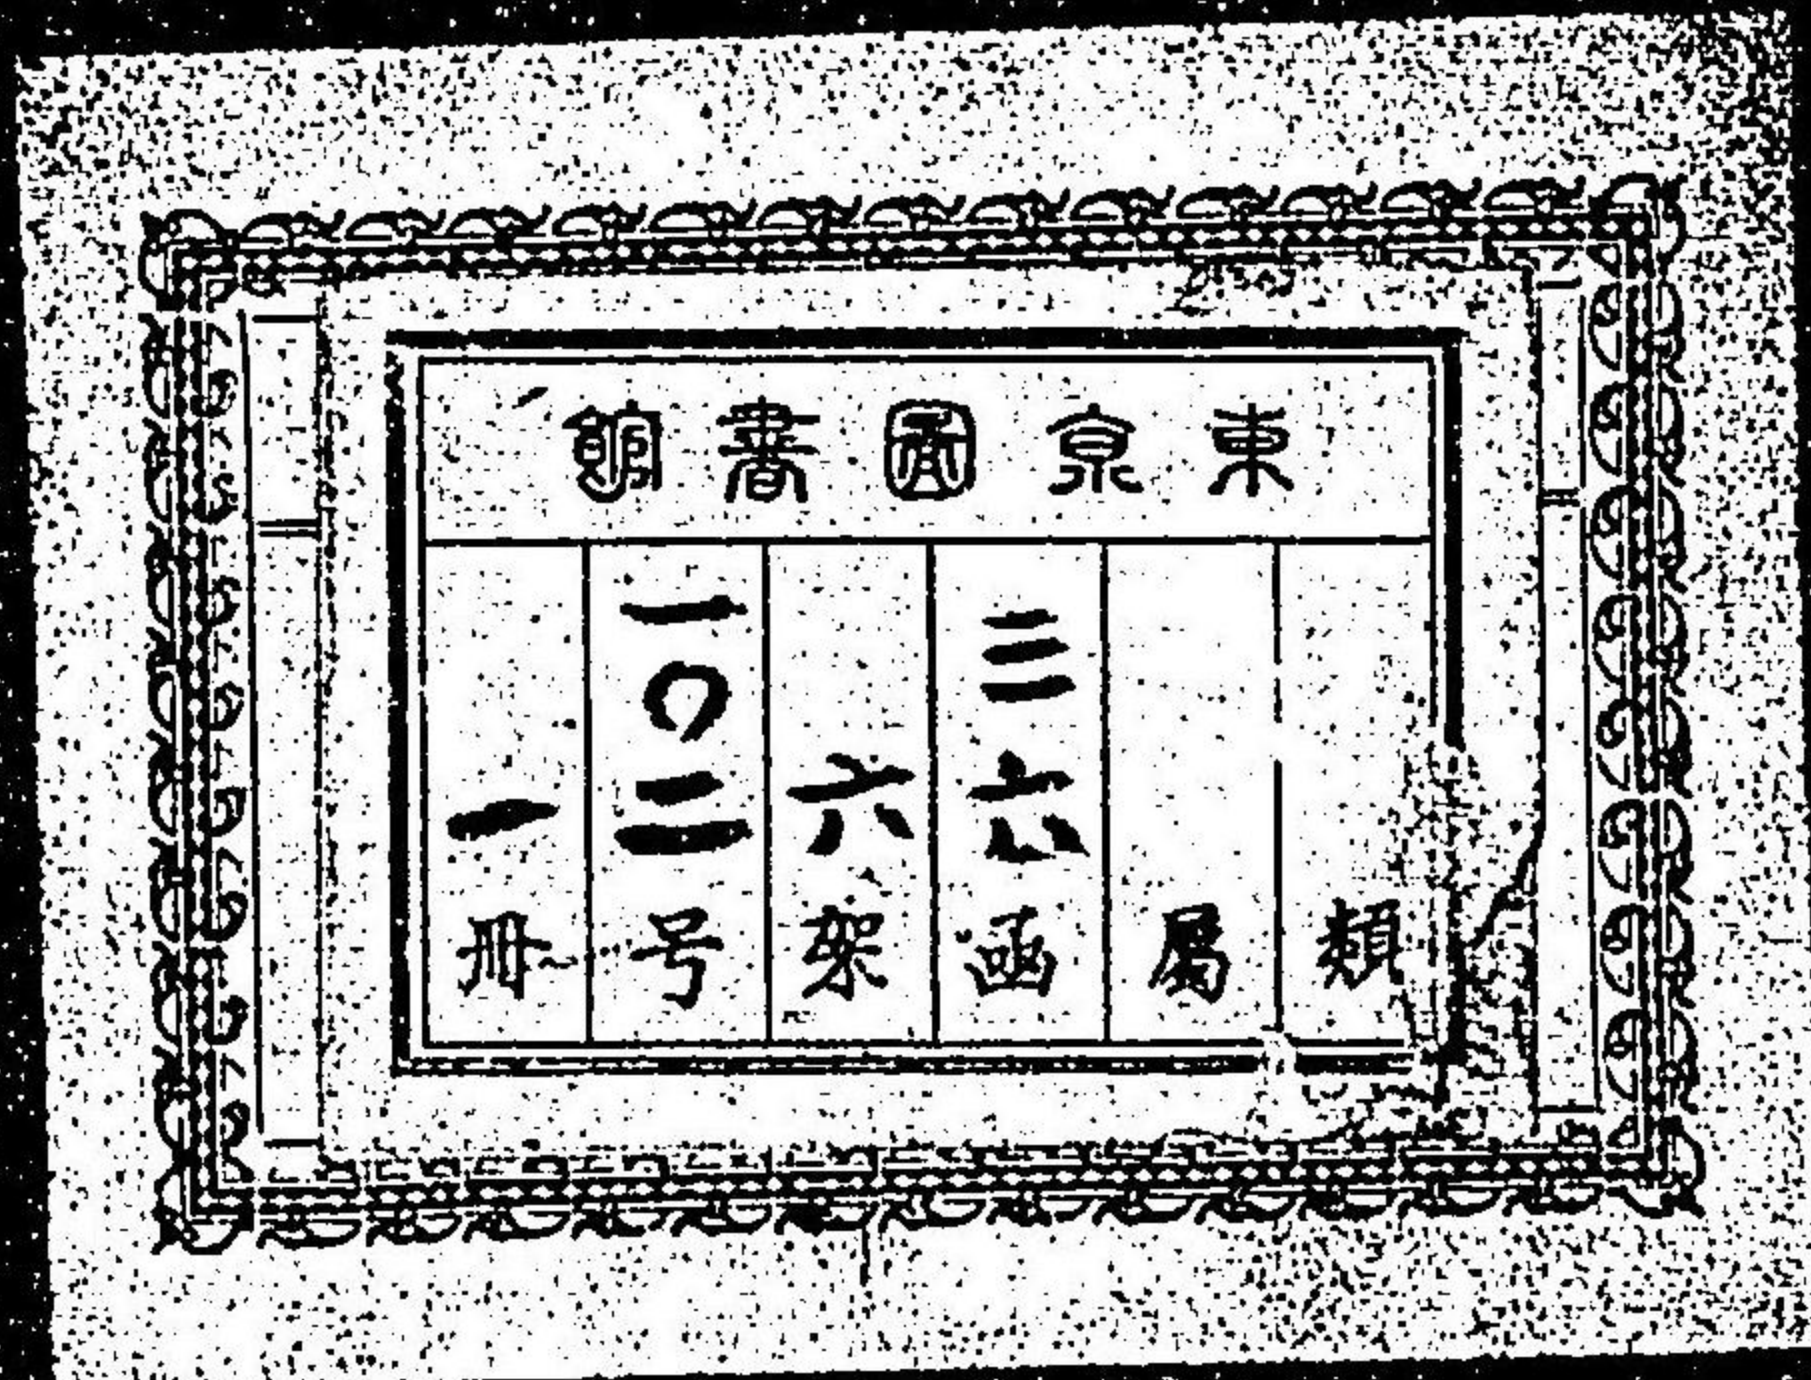 東京圖書館
類
屬
三六函
六架
一〇二号
一冊